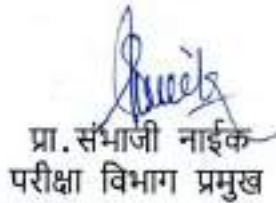 प्रा.संभाजी नाईक
परीक्षा विभाग प्रमुख